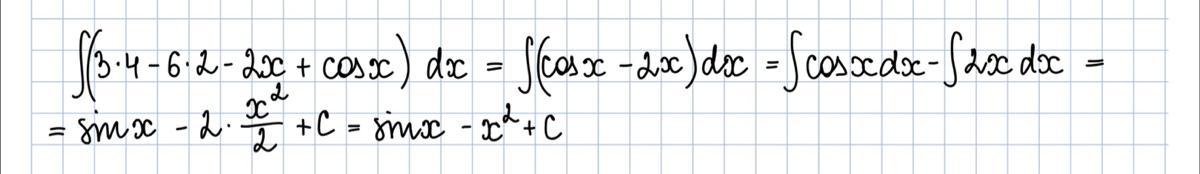 ∫(3·4 − 6·2 − 2x + cosx) dx = ∫(cosx − 2x)dx = ∫cosxdx − ∫2xdx =
= sinx − 2·x²/2 + C = sinx − x² + C